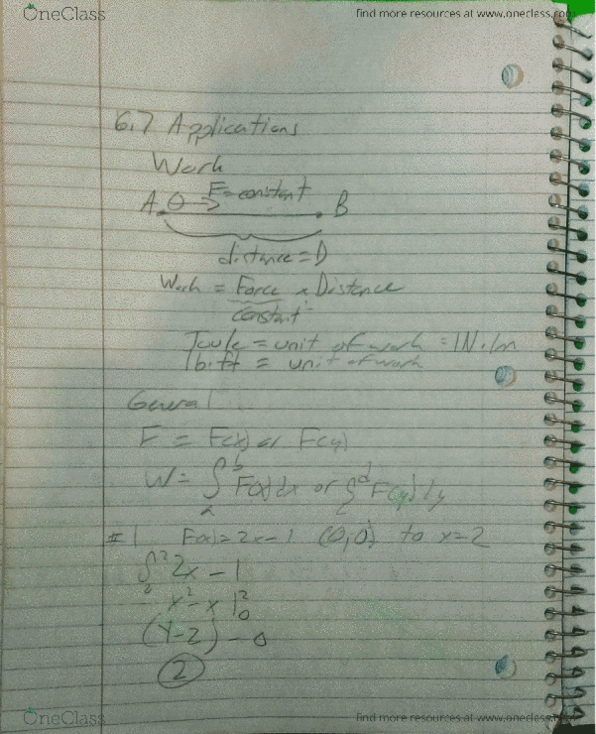 OneClass
find more resources at www.oneclass.com
6.7 Applications
Work
A F=constant B
distance = D
Work = Force x Distance
constant
Joule = unit of work = 1N·1m
lb·ft = unit of work
General
F = F(x) or F(y)
W = ∫ₐᵇ F(x)dx or ∫ᶜᵈ F(y)dy
#1 F(x) = 2x-1 (0,0) to x=2
∫₀² 2x - 1
x² - x |₀²
(4-2) - 0
2
OneClass
find more resources at www.oneclass.com